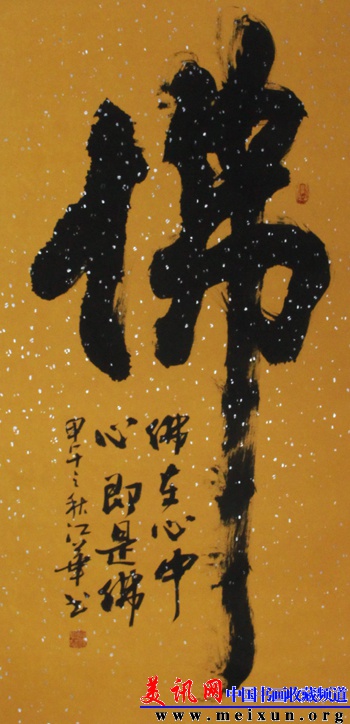 佛
佛在心中
心即是佛
甲午之秋江華書
美讯网 中国书画收藏频道
www.meixun.org